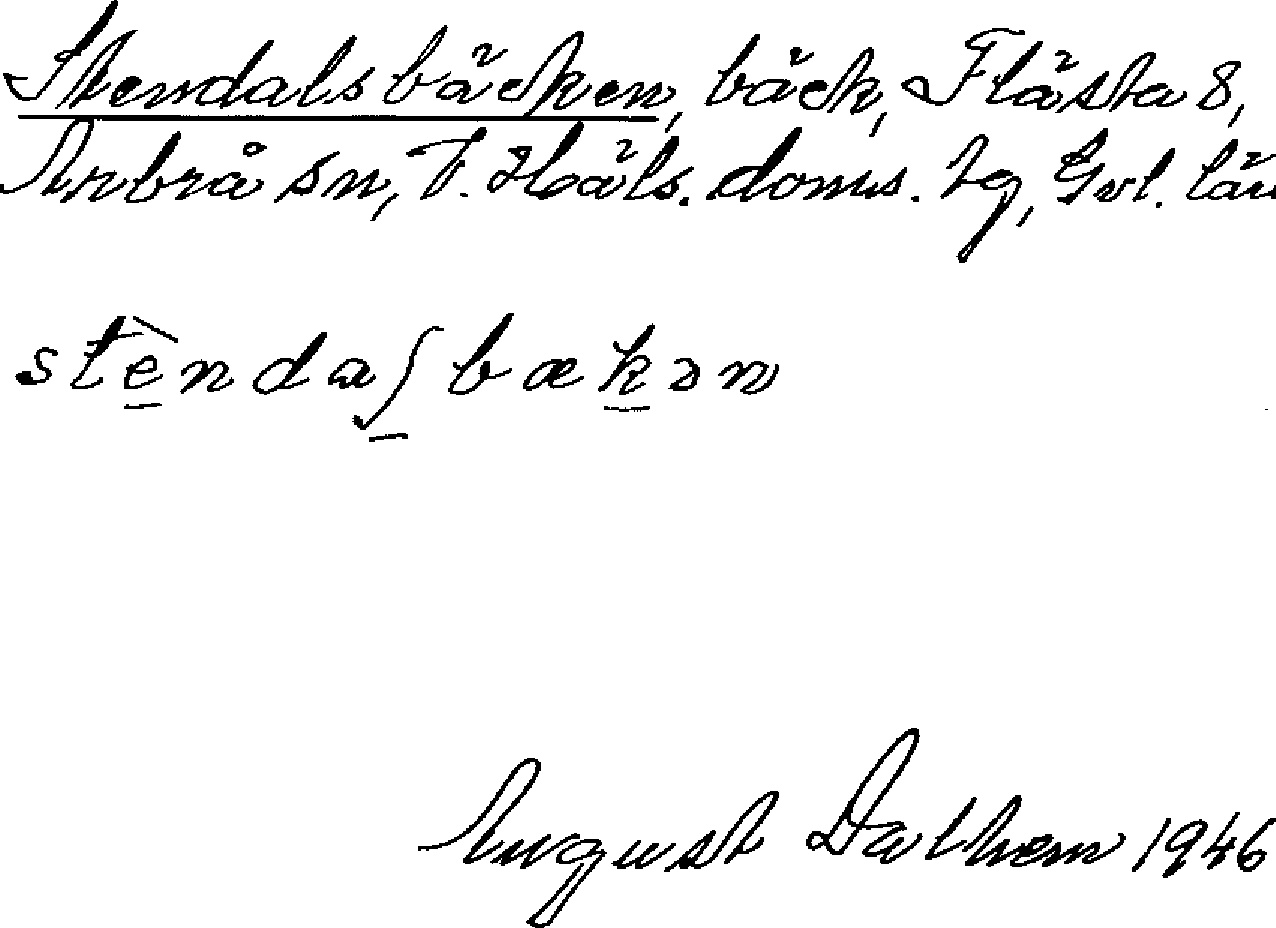 Stendalsbäcken, bäck, Flästa 8,
Arbrå sn, V. Häls. doms. tg, Gvl. län
stèndaʃbækən
August Dalhem 1946